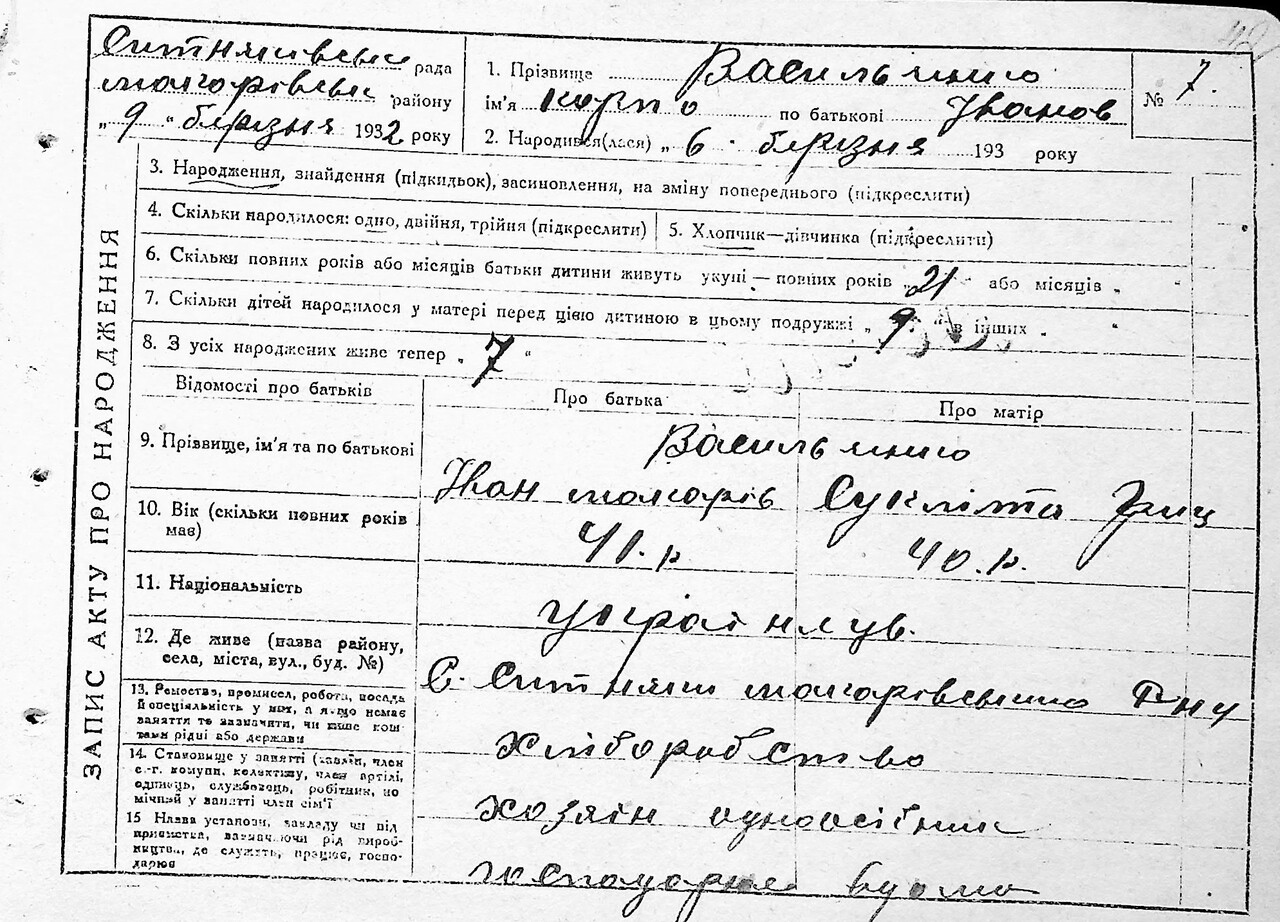 42
Ситняківська рада
Макарівськ. району
„ 9 “ березня 1932 року
1. Прізвище Васильченко
ім'я Карпо по батькові Іванов
2. Народився(лася) „ 6 . березня 193 року
№ 7.
ЗАПИС АКТУ ПРО НАРОДЖЕННЯ
3. Народження, знайдення (підкидьок), засиновлення, на зміну попереднього (підкреслити)
4. Скільки народилося: одно, двійня, трійня (підкреслити)
5. Хлопчик—дівчинка (підкреслити)
6. Скільки повних років або місяців батьки дитини живуть укупі — повних років „ 21 “ або місяців „ “
7. Скільки дітей народилося у матері перед цією дитиною в цьому подружжі „ 9. “ в інших „ “
8. З усіх народжених живе тепер „ 7 “
Відомості про батьків
Про батька
Про матір
9. Прізвище, ім'я та по батькові
Васильченко
Іван Макарів
Сукліта Гриц
10. Вік (скільки повних років має)
41. р
40. р.
11. Національність
12. Де живе (назва району,
села, міста, вул., буд. №)
С. Ситняки Макарівського Р-ну
13. Ремество, промисел, робота, посада
й спеціяльність у них, а якщо немає
заняття то зазначити, чи живе кош-
тами рідні або держави
хліборобство
14. Становище у занятті (хазяїн, член
с.-г. комуни, колективу, член артілі,
одинець, службовець, робітник, по
мічний у занятті член сім'ї
хозяін одноосібник
15 Назва установи, закладу чи під
приємства, зазначаючи рід вироб-
ництва, де служить, працює, госпо-
дарює
господарює вдома